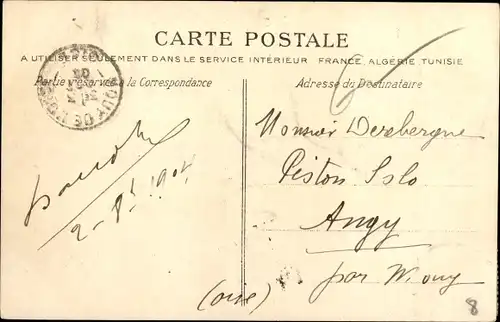 CARTE POSTALE
A UTILISER SEULEMENT DANS LE SERVICE INTÉRIEUR FRANCE, ALGÉRIE TUNISIE
Partie réservée a la Correspondance
Adresse du Destinataire
Monsieur Dezebergue
Piston Solo
Angy
par Mouy
(oise)
8